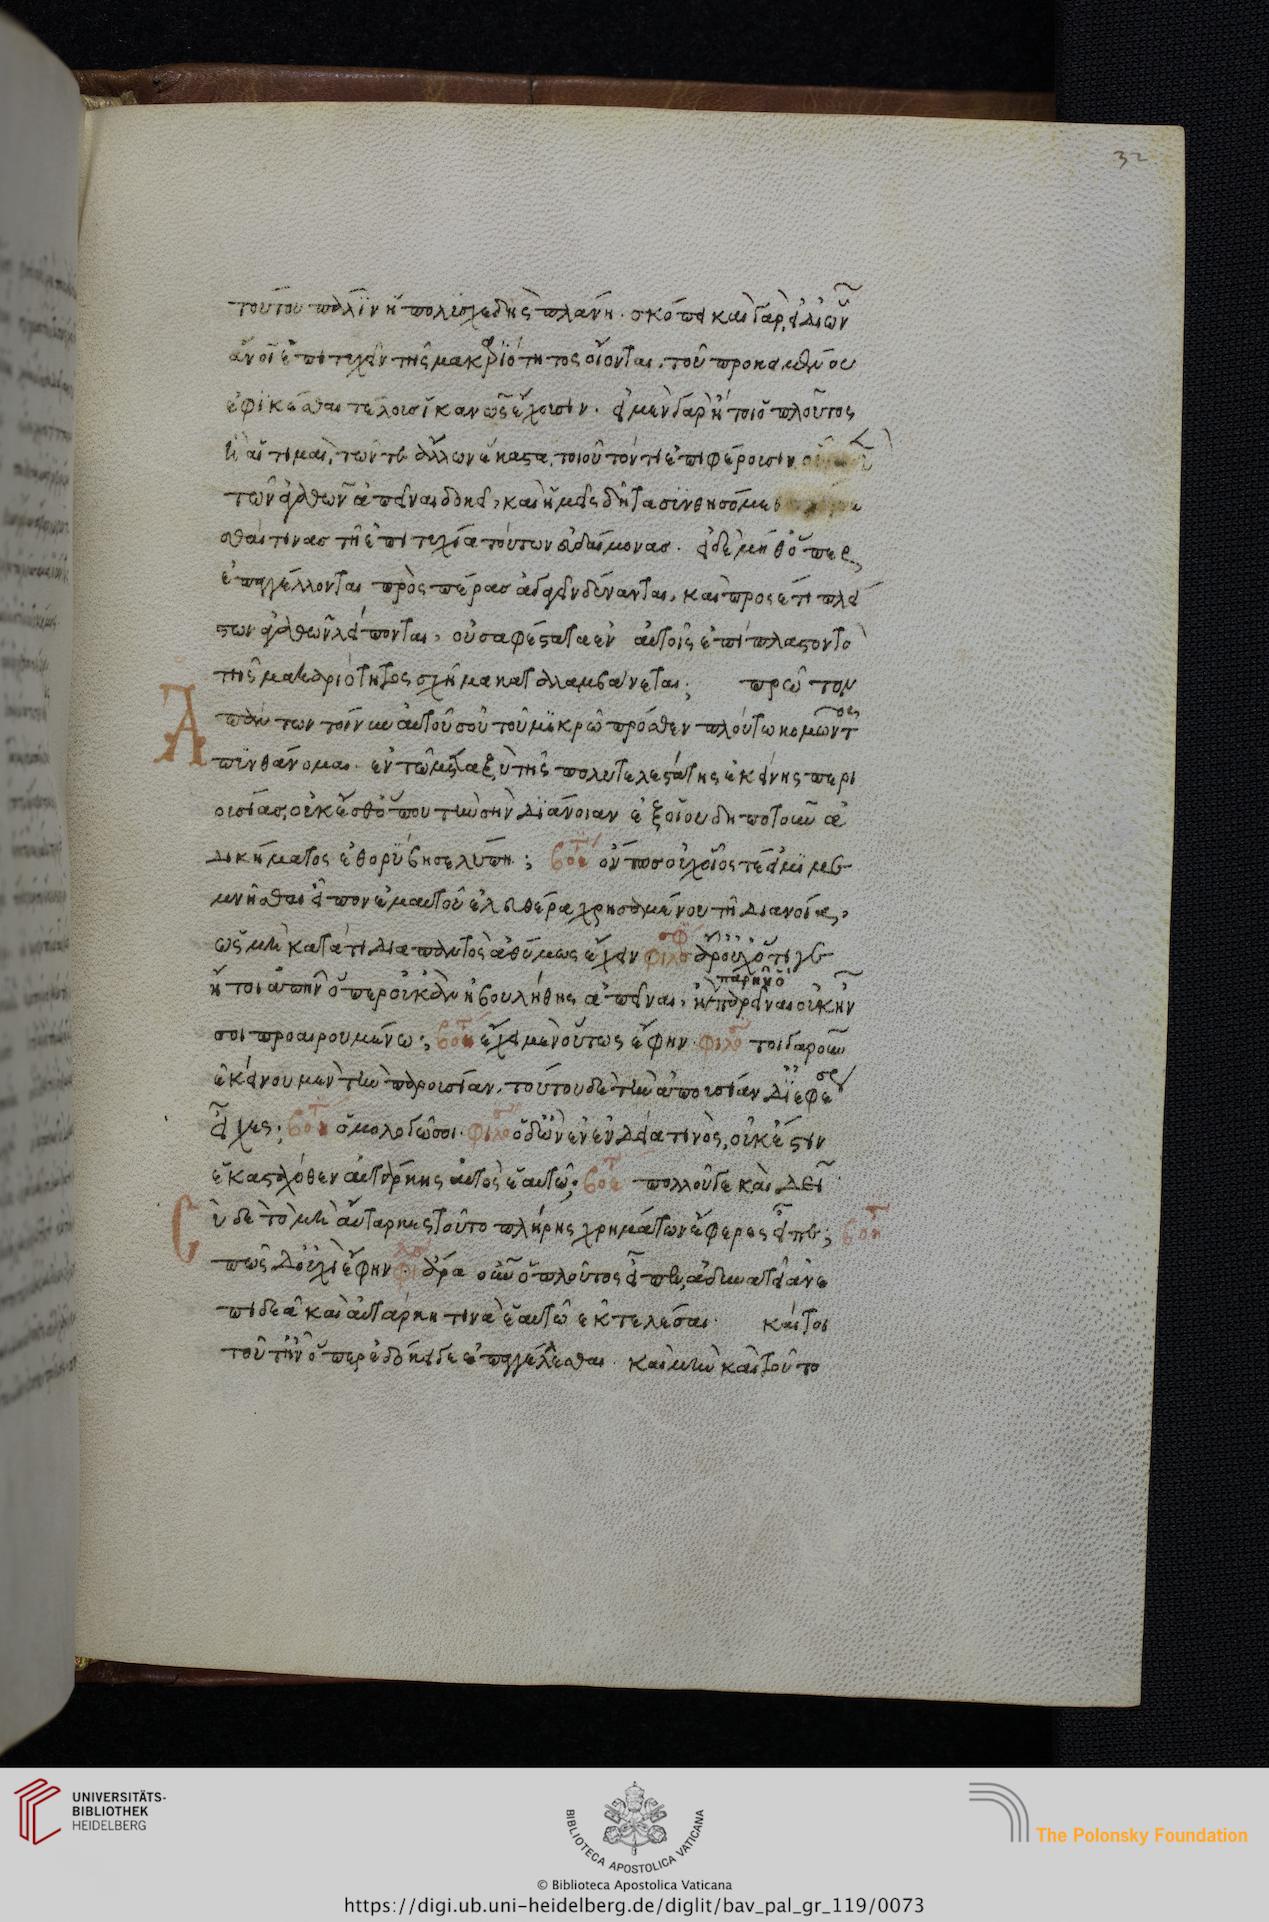 32
τούτου πάλιν ἡ πολυσχεδὴς πλάνη. σκόπει καὶ γὰρ, εἰ δι' ὧν
ἂν οἱ ἐπιτυχεῖν τῆς μακαριότητος οἴονται, τοῦ προκειμένου
ἐφικέσθαι τέλους ἱκανῶς ἔχουσιν. εἰ μὲν γὰρ ἤτοι ὁ πλοῦτος
ἢ αἱ τιμαὶ, τῶν τε ἄλλων ἕκαστα, τοιοῦτόν τι ἐπιφέρουσιν
τῶν ἀγαθῶν ἀπεῖναι δοκεῖ, καὶ ἡμεῖς δῆτα συνθησόμε
σθαι τινας τῇ ἐπιτυχίᾳ τούτων εὐδαίμονας. εἰ δὲ μήθ' ὅπερ
ἐπαγγέλλονται πρὸς πέρας ἀγαγεῖν δύνανται, καὶ προσέτι πλεί
στων ἀγαθῶν λείπονται, οὐ σαφέστατα ἐν αὐτοῖς ἐπίπλαστον τὸ
τῆς μακαριότητος σχῆμα καταλαμβάνεται; πρῶτον
Α πάντων τοίνυν αὐτοῦ σοῦ τοῦ μικρῷ πρόσθεν πλούτῳ κομῶντος
πυνθάνομαι. ἐν τῷ μεταξὺ τῆς πολυτελεστάτης ἐκείνης περι
ουσίας, οὐκ ἔσθ' ὅπου τὴν σὴν διάνοιαν ἐξ οἵου δήποτ' οὖν ἀ
δικήματος ἐθορύβησε λύπη; βοη οὔ πως οὐχ οἷός τέ εἰμι με
μνῆσθαι εἶπον ἐμαυτοῦ ἐλευθέρα χρησαμένου τῇ διανοίᾳ,
ὡς μὴ κατά τι διαπαντὸς ἀθύμως ἔχειν φιλοσοφ
ἤτοι ἀπῆν ὅπερ οὐκ ἂν ἠβουλήθης ἀπεῖναι, ἢ παρεῖναι οὐκ ἦν
παρῆν ὃ
σοι προαιρουμένῳ; βοη εἶχε μὲν οὕτως ἔφην. φιλο τοιγαροῦν
ἐκείνου μὲν τὴν παρουσίαν, τούτου δὲ τὴν ἀπουσίαν δι' ἐφέσεως
εἶχες; βοη ὁμολογῶσοι. φιλοσο ὁ δ' ὢν ἐν ἐνδείᾳ τινὸς, οὐκ ἔστιν
ἑκασταχόθεν αὐτάρκης αὐτὸς ἑαυτῷ; βοη πολλοῦ γε καὶ δεῖ
C ὺ δὲ τὸ μὴ αὔταρκες τοῦτο πλήρης χρημάτων ἔφερες εἶπε; βοη
πῶς δ' οὐχὶ ἔφην. φιλοσ ἄρα οὖν ὁ πλοῦτος εἶπεν, ἀδυνατεῖ ἀνε
πιδεᾶ καὶ αὐτάρκη τινὰ ἑαυτῷ ἐκτελέσαι. καίτοι
τοῦτ' ἦν ὅπερ ἐδόκει γε ἐπαγγέλλεσθαι. καὶ μὴν καὶ τοῦτο
UNIVERSITÄTS-
BIBLIOTHEK
HEIDELBERG
BIBLIOTECA APOSTOLICA VATICANA
The Polonsky Foundation
© Biblioteca Apostolica Vaticana
https://digi.ub.uni-heidelberg.de/diglit/bav_pal_gr_119/0073